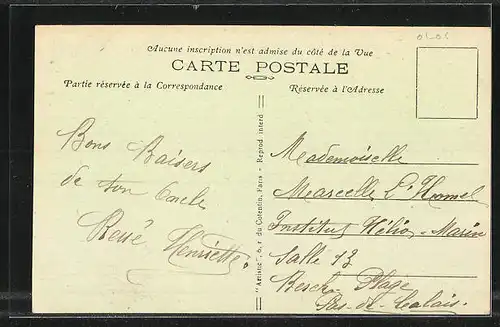 OLOS
Aucune inscription n'est admise du côté de la Vue
CARTE POSTALE
Partie réservée à la Correspondance
Réservée à l'Adresse
Bons Baisers
de ton Oncle
René Henriette.
"Artistic", 6, r du Cotentin, Paris - Reprod interd
Mademoiselle
Marcelle L'Homel
Institut Hélio-Marin
Salle 13
Berck-Plage
Pas-de-Calais.